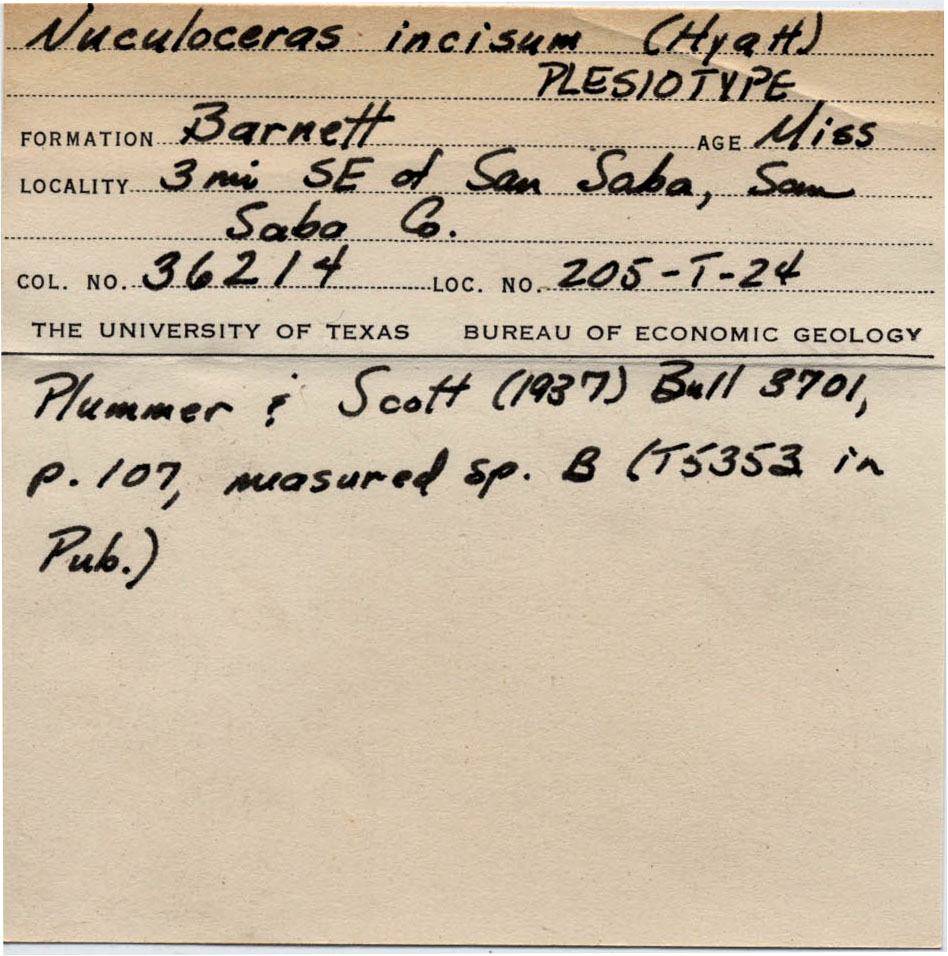 Nuculoceras incisum (Hyatt)
PLESIOTYPE
FORMATION Barnett AGE Miss
LOCALITY 3 mi SE of San Saba, San
Saba Co.
COL. NO. 36214 LOC. NO. 205-T-24
THE UNIVERSITY OF TEXAS BUREAU OF ECONOMIC GEOLOGY
Plummer & Scott (1937) Bull 3701,
p. 107, measured sp. B (T5353 in
Pub.)